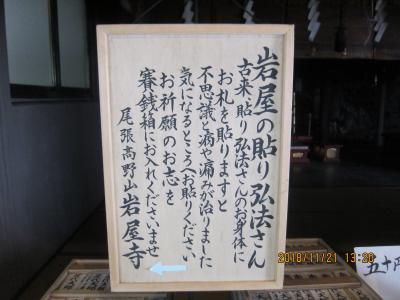 岩屋の貼り弘法さん
古来、貼り弘法さんのお身体に
お札を貼りますと
不思議と病や痛みが治りました
気になるところへお貼りください
お祈願のお志を
賽銭箱にお入れくださいませ
尾張高野山 岩屋寺
五十円
2018/11/21 13:20